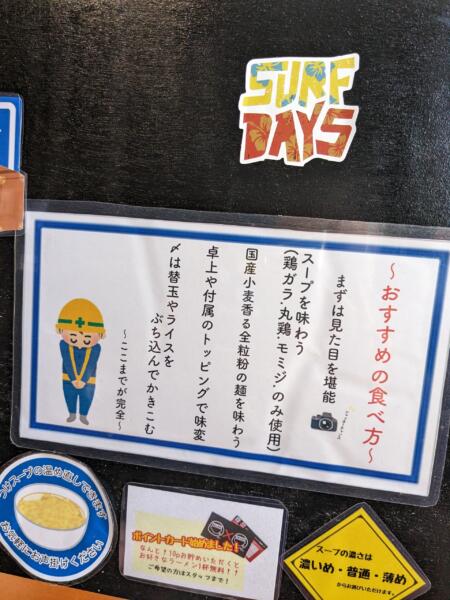 SURF
DAYS
～おすすめの食べ方～
まずは見た目を堪能
スープを味わう
(鶏ガラ・丸鶏・モミジ・のみ使用)
国産小麦香る全粒粉の麺を味わう
卓上や付属のトッピングで味変
〆は替玉やライスを
ぶち込んでかきこむ
～ここまでが完全～
つけスープの温め直しできます
お気軽にお声掛けください
ポイントカード始めました！
なんと！10pお貯めいただくと
お好きなラーメン1杯無料！！
ご希望の方はスタッフまで！
スープの濃さは
濃いめ・普通・薄め
からお選びいただけます。